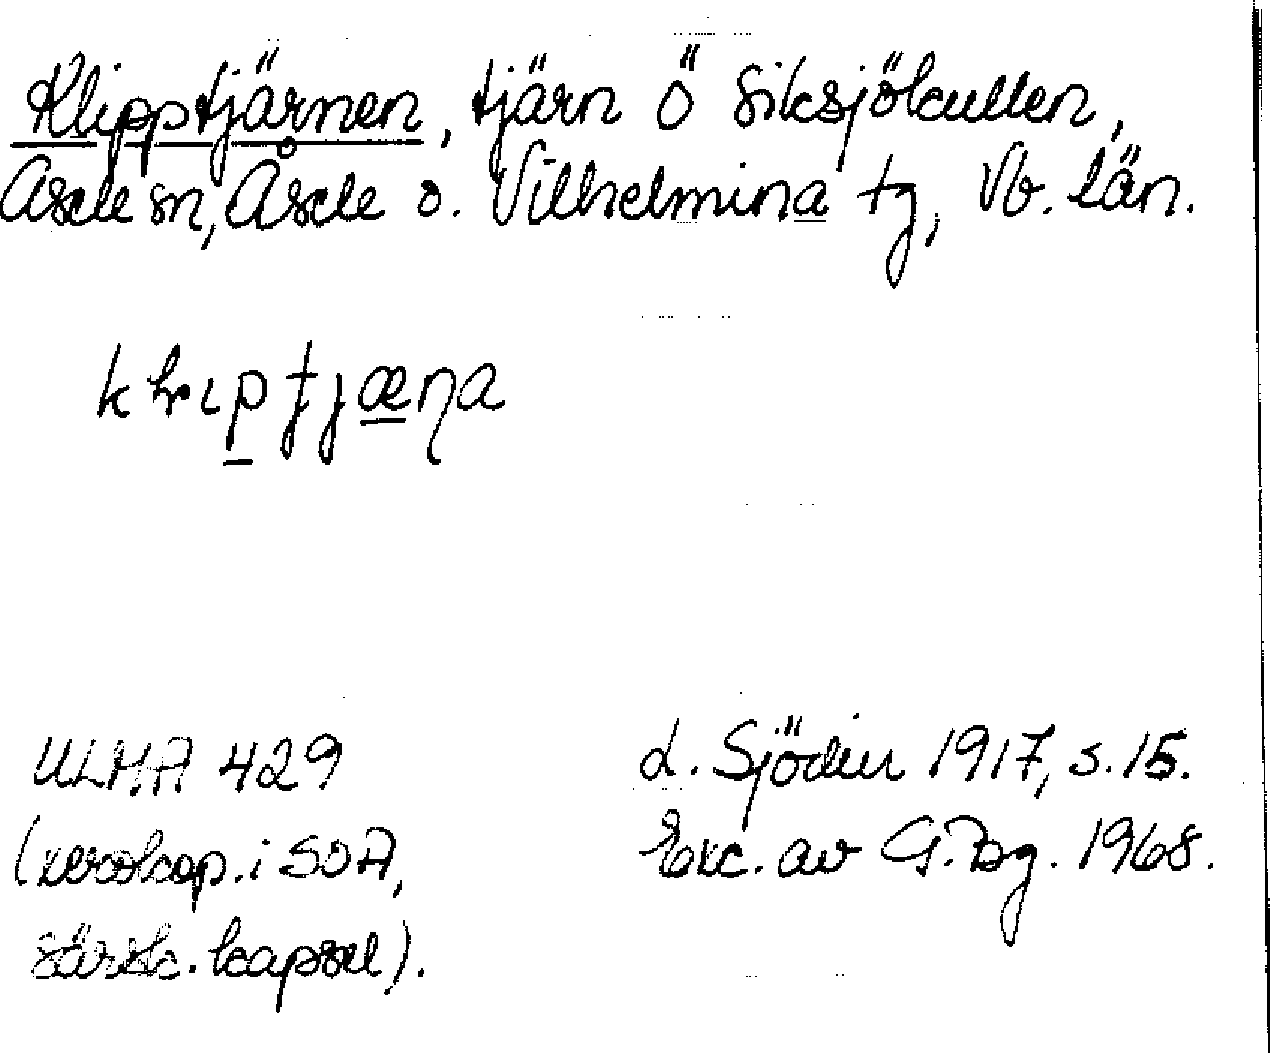 Klipptjärnen, tjärn Ö Siksjökullen,
Åsele sn, Åsele o. Vilhelmina tg, Vb. län.
ULMA 429
(xerokop. i SOA,
särsk. kapsel).
L. Sjödin 1917, s. 15.
Exc. av G. Dg. 1968.